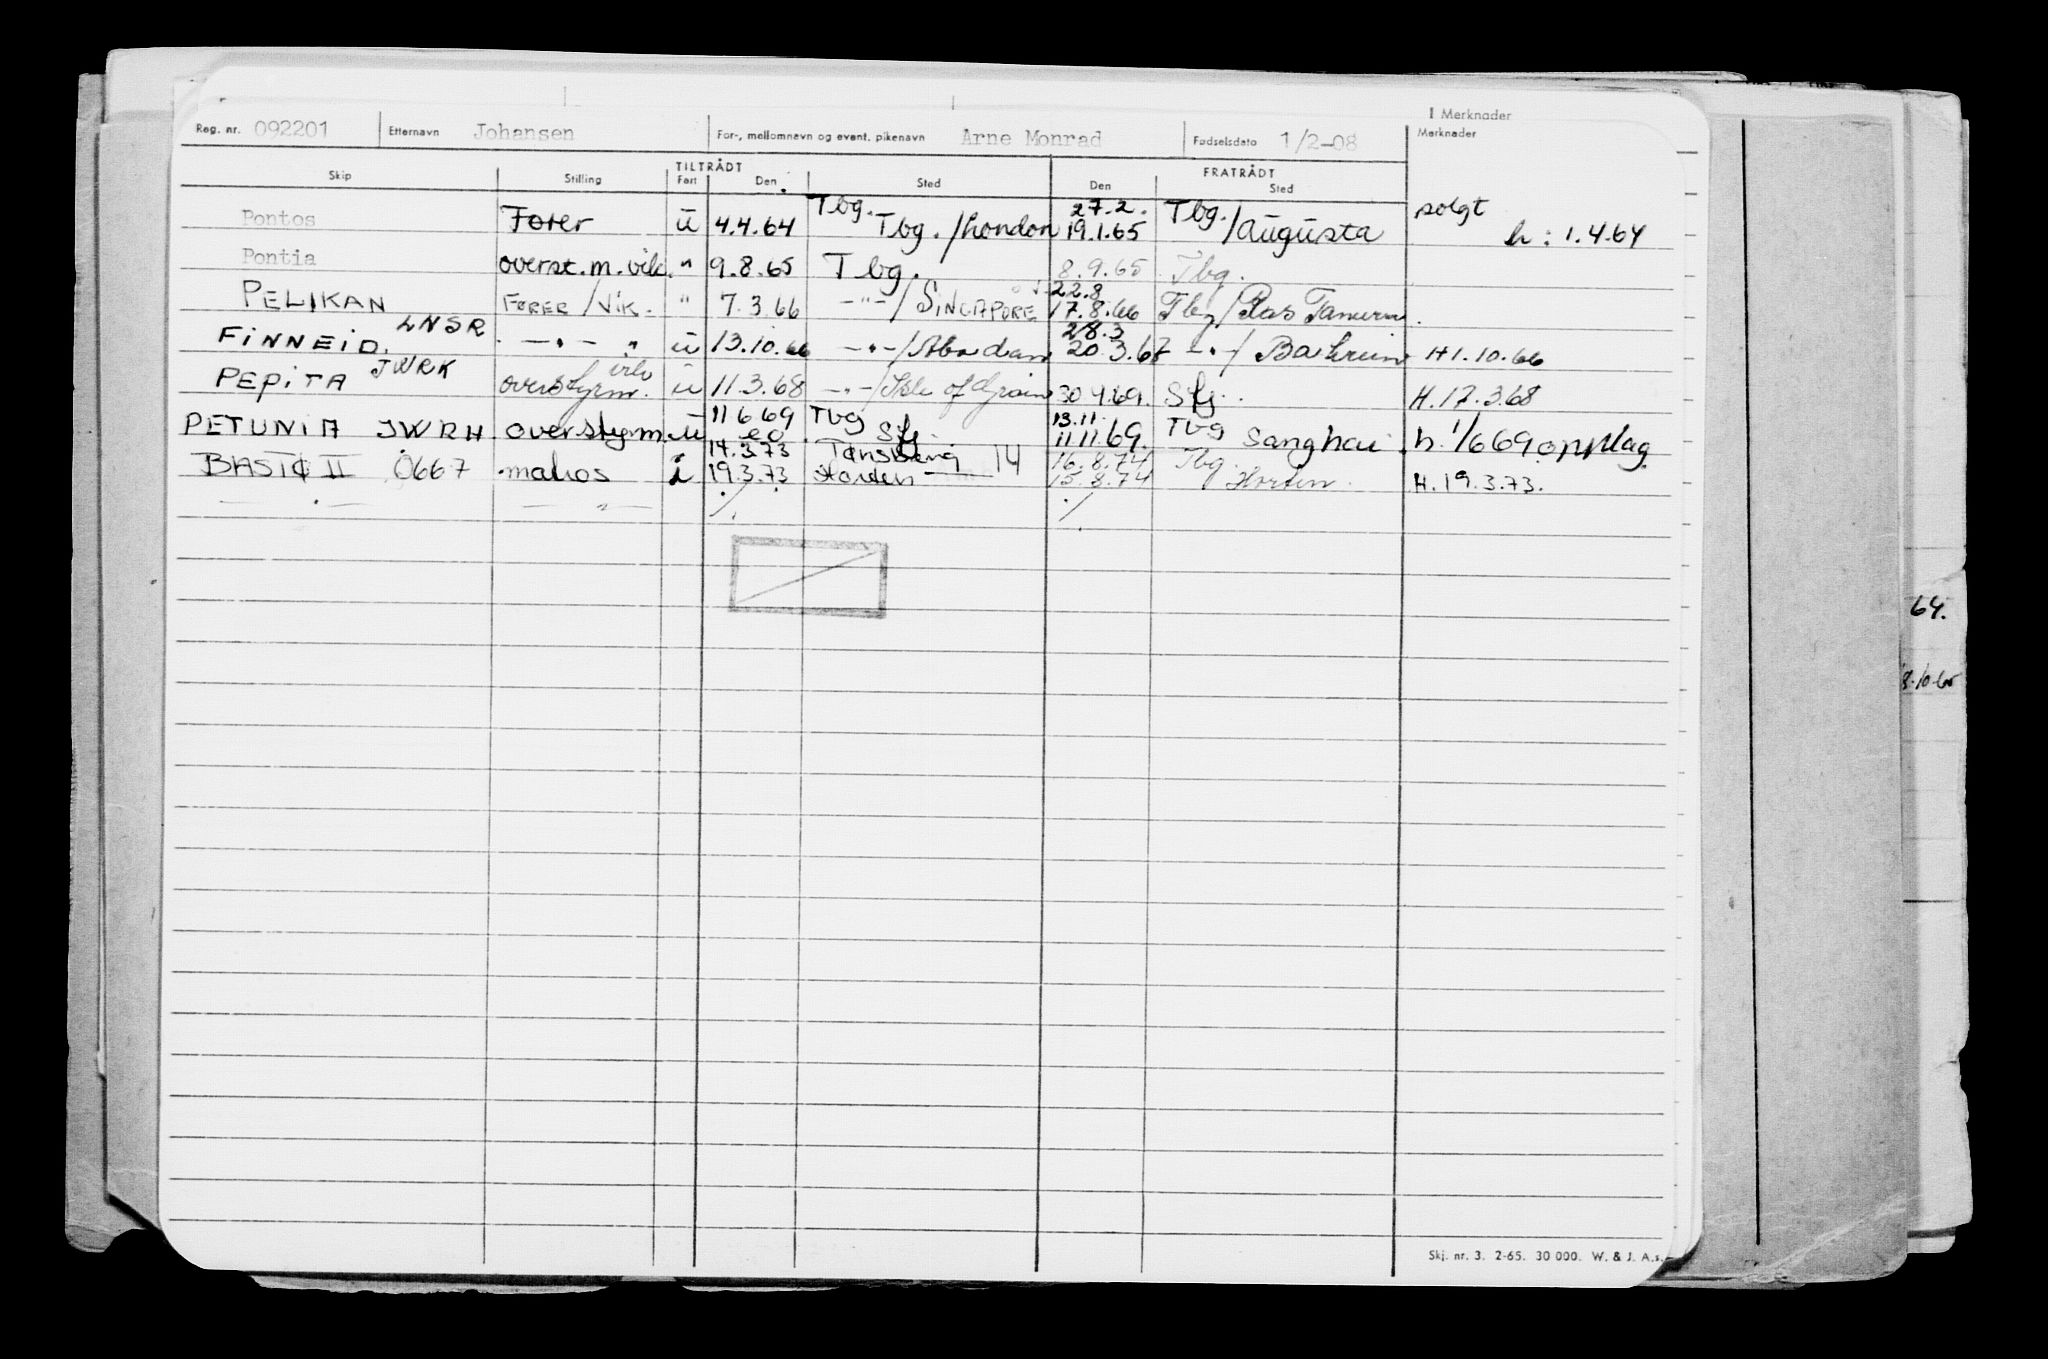 I Merknader
Reg. nr. 092201 Etternavn Johansen For-, mellomnavn og event. pikenavn Arne Monrad Fødselsdato 1/2-08 Merknader
TILTRÅDT FRATRÅDT
Skip Stilling Fart Den Sted Den Sted
Tbg. 27.2. Tbg. solgt
Pontos Fører u 4.4.64 Tbg. /London 19.1.65 /Augusta h: 1.4.64
Pontia overst.m.vik. " 9.8.65 Tbg. 8.9.65 Tbg.
22.8
PELIKAN FØRER/VIK. " 7.3.66 -"-/SINGAPORE 17.8.66 Tbg/Ras Tanura.
LNSR 28.3
FINNEID. -"- " u 13.10.66 -"-/Abadan 20.3.67 -"-/ Bahrein H1.10.66
JWRK vik
PEPITA overstyrm. u 11.3.68 -"-/Isle of Grain 30.4.69. Stj. H.17.3.68
11 6 69 Tbg 13.11 Tbg
PETUNIA JWRH. overstyrm. u Stj 11.11.69. Sanghai. h. 1/6 69 opplag
14.3.73 Tønsberg 14 16.8.74 Tbg.
BASTØ II Ö667 matros i 19.3.73 Horten 15.8.74 Horten. H.19.3.73.
— " — — " — ./. ./.
64.
8.10.65
Skj. nr. 3. 2-65. 30 000. W. & J. A.s.